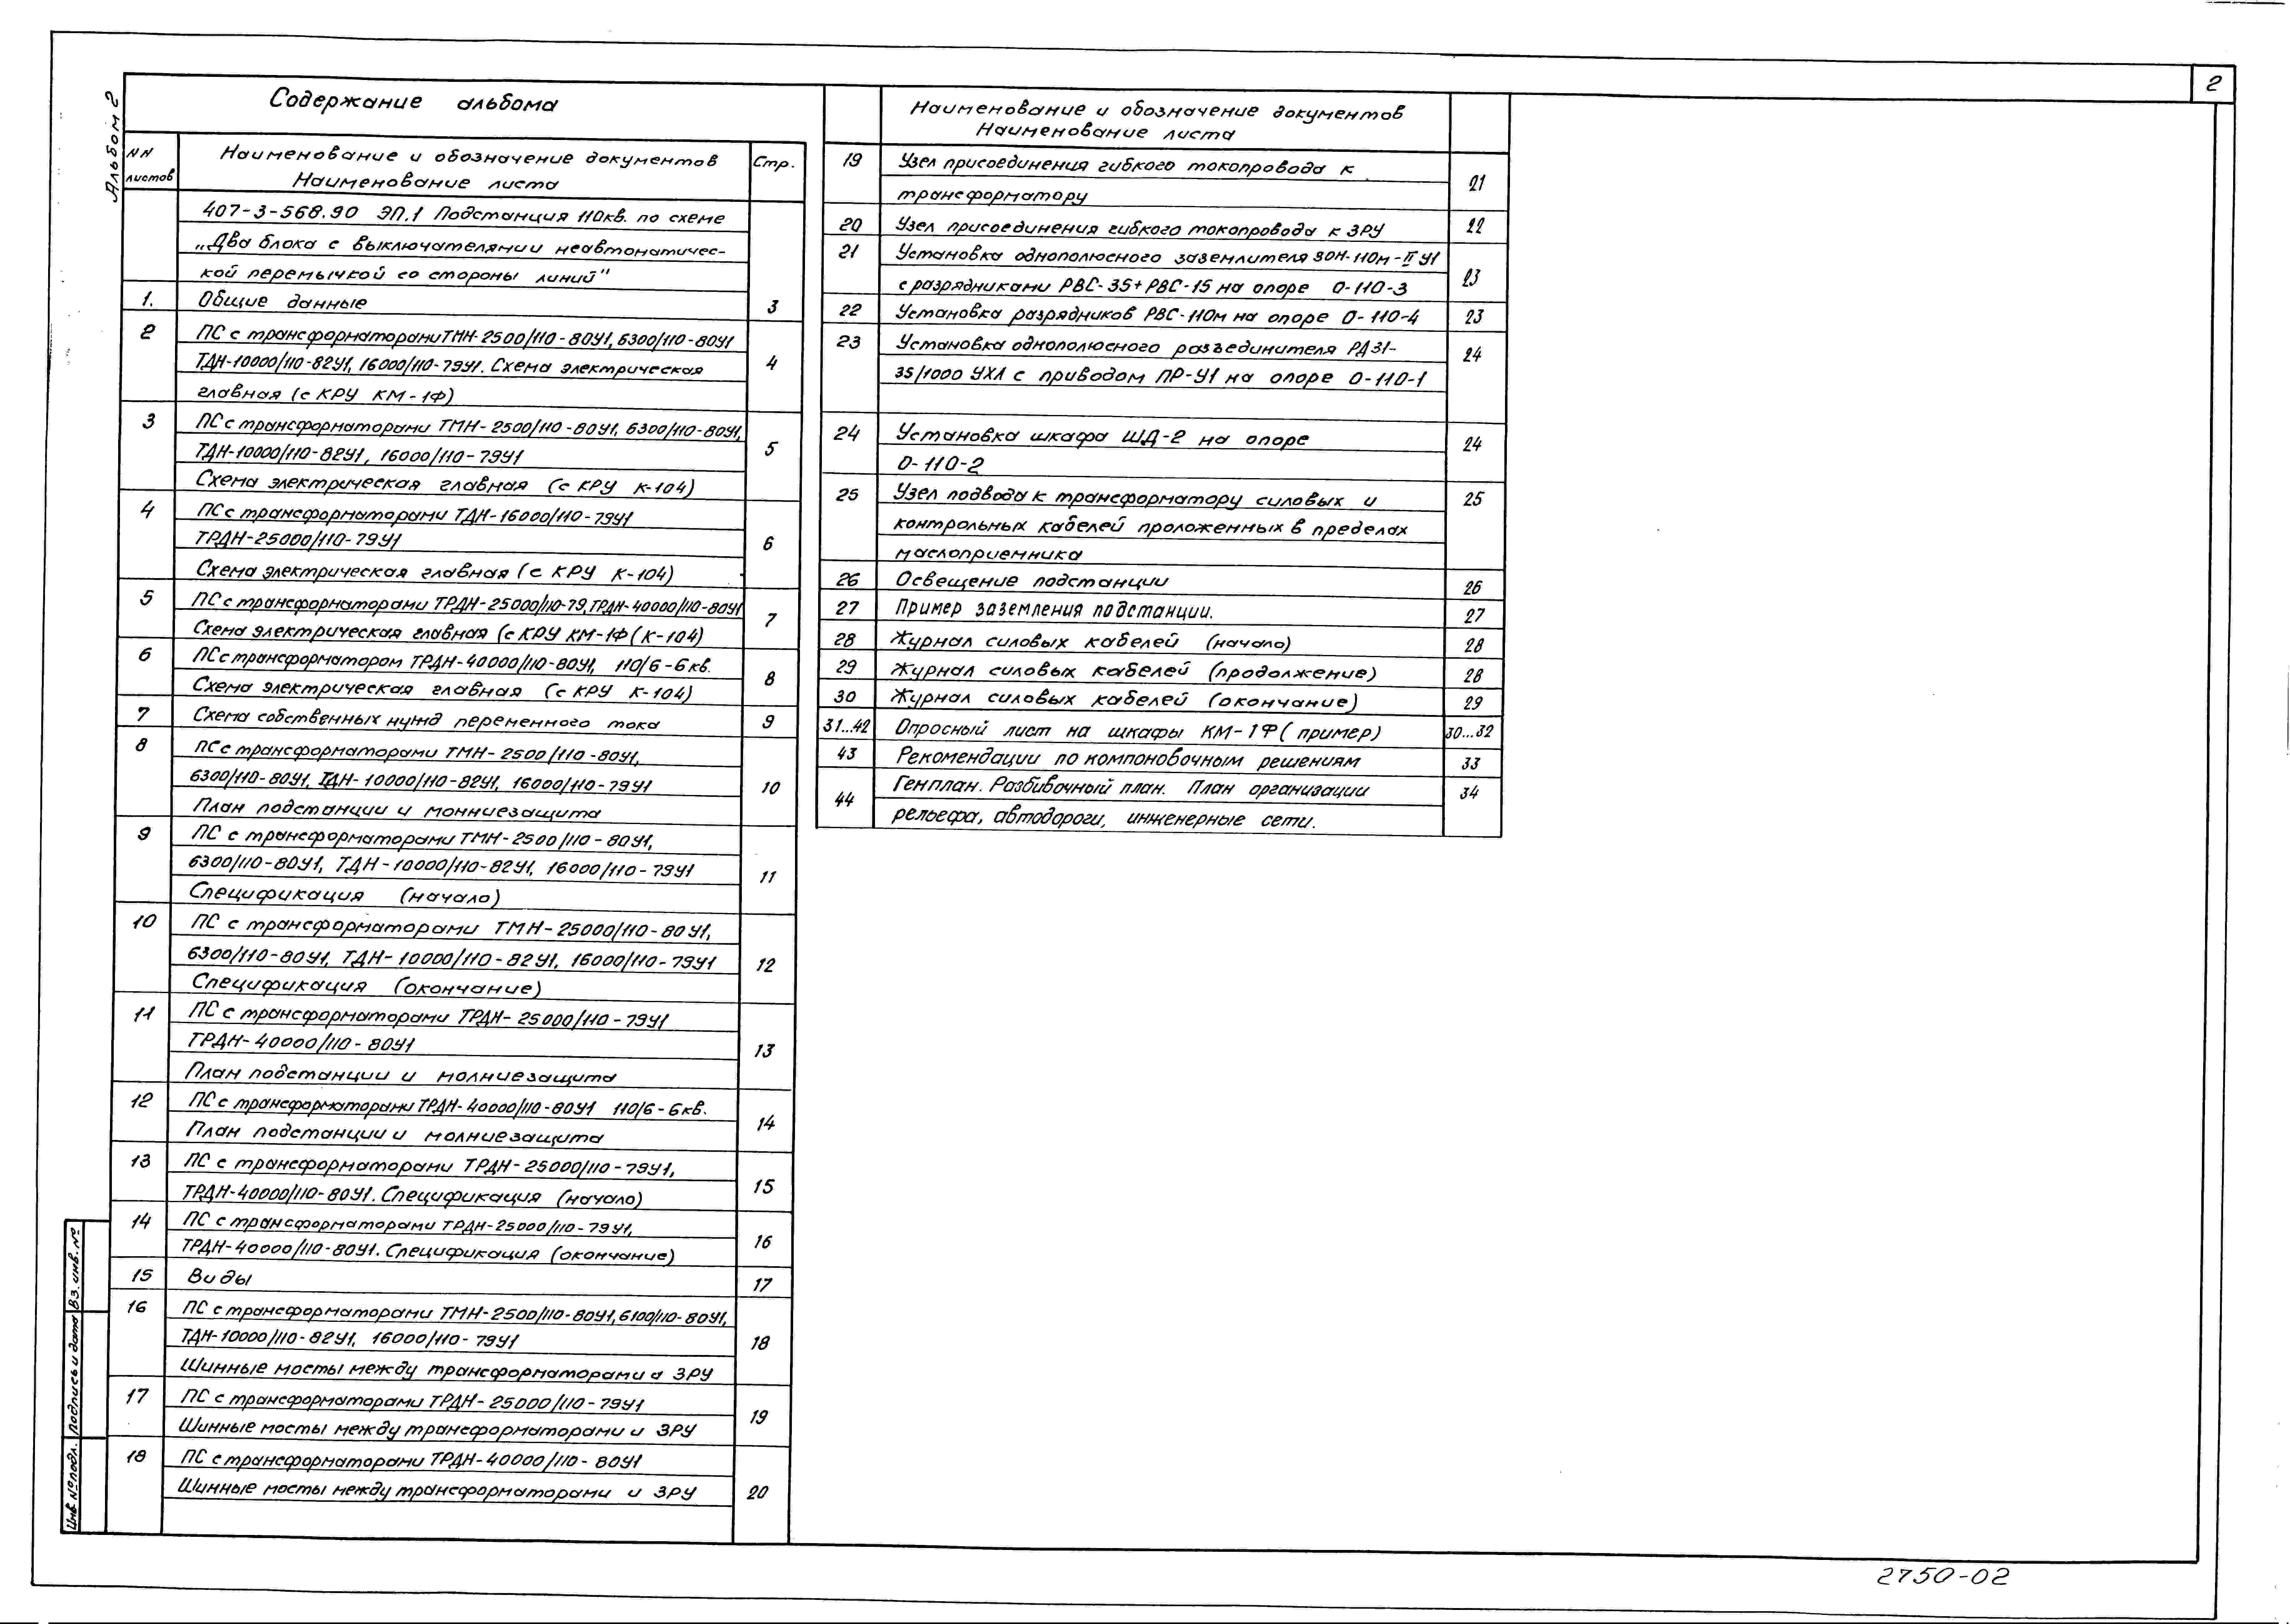 2
Альбом 2
Содержание альбома
NN листов
Наименование и обозначение документов
Наименование листа
Стр.
407-3-568.90 ЭП.1 Подстанция 110кв. по схеме
„Два блока с выключателянии неавтонатичес-
кой перемычкой со стороны линий"
1. Общие данные 3
2 ПС с трансформаторами ТМН-2500/110-80У1, 6300/110-80У1
ТДН-10000/110-82У1, 16000/110-79У1. Схема электрическая 4
главная (с КРУ КМ-1Ф)
3 ПС с трансформаторами ТМН-2500/110-80У1, 6300/110-80У1,
ТДН-10000/110-82У1, 16000/110-79У1 5
Схема электрическая главная (с КРУ К-104)
4 ПС с трансформаторами ТДН-16000/110-79У1
ТРДН-25000/110-79У1 6
Схема электрическая главная (с КРУ К-104)
5 ПС с трансформаторами ТРДН-25000/110-79, ТРДН-40000/110-80У1
Схема электрическая главная (с КРУ КМ-1Ф (К-104) 7
6 ПС с трансформатором ТРДН-40000/110-80У1, 110/6-6кв.
Схема электрическая главная (с КРУ К-104) 8
7 Схема собственных нужд переменного тока 9
8 ПС с трансформаторами ТМН-2500/110-80У1,
6300/110-80У1, ТДН-10000/110-82У1, 16000/110-79У1 10
План подстанции и монниезащита
9 ПС с трансформаторами ТМН-2500/110-80У1,
6300/110-80У1, ТДН-10000/110-82У1, 16000/110-79У1 11
Спецификация (начало)
10 ПС с трансформаторами ТМН-25000/110-80У1,
6300/110-80У1, ТДН-10000/110-82У1, 16000/110-79У1 12
Спецификация (окончание)
11 ПС с трансформаторами ТРДН-25000/110-79У1
ТРДН-40000/110-80У1 13
План подстанции и молниезащита
12 ПС с трансформаторами ТРДН-40000/110-80У1 110/6-6кв. 14
План подстанции и молниезащита
13 ПС с трансформаторами ТРДН-25000/110-79У1,
ТРДН-40000/110-80У1. Спецификация (начало) 15
14 ПС с трансформаторами ТРДН-25000/110-79У1,
ТРДН-40000/110-80У1. Спецификация (окончание) 16
15 Виды 17
16 ПС с трансформаторами ТМН-2500/110-80У1, 6100/110-80У1,
ТДН-10000/110-82У1, 16000/110-79У1 18
Шинные мосты между трансформаторами и ЗРУ
17 ПС с трансформаторами ТРДН-25000/110-79У1
Шинные мосты между трансформаторами и ЗРУ 19
18 ПС с трансформаторами ТРДН-40000/110-80У1
Шинные мосты между трансформаторами и ЗРУ 20
Наименование и обозначение документов
Наименование листа
19 Узел присоединения гибкого токопровода к
трансформатору 21
20 Узел присоединения гибкого токопровода к ЗРУ 22
21 Установка однополюсного заземлителя ЗОН-110м-II У1
с разрядниками РВС-35+РВС-15 на опоре О-110-3 23
22 Установка разрядников РВС-110м на опоре О-110-4 23
23 Установка однополюсного разъединителя РДЗ1-
35/1000 УХЛ с приводом ПР-У1 на опоре О-110-1 24
24 Установка шкафа ШД-2 на опоре 24
О-110-2
25 Узел подвода к трансформатору силовых и 25
контрольных кабелей проложенных в пределах
маслоприемника
26 Освещение подстанции 26
27 Пример заземления подстанции. 27
28 Журнал силовых кабелей (начало) 28
29 Журнал силовых кабелей (продолжение) 28
30 Журнал силовых кабелей (окончание) 29
31...42 Опросный лист на шкафы КМ-1Ф (пример) 30...32
43 Рекомендации по компоновочным решениям 33
44 Генплан. Разбивочный план. План организации 34
рельефа, автодороги, инженерные сети.
Инв. № подл. Подпись и дата Вз. инв. №
2750-02